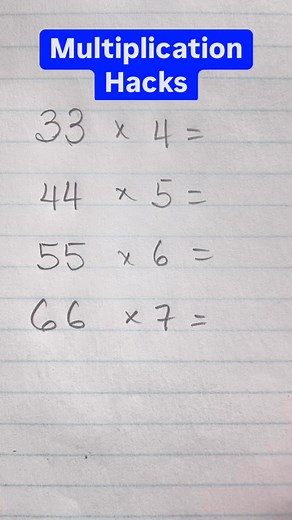 Multiplication
Hacks
33 × 4 =
44 × 5 =
55 × 6 =
66 × 7 =